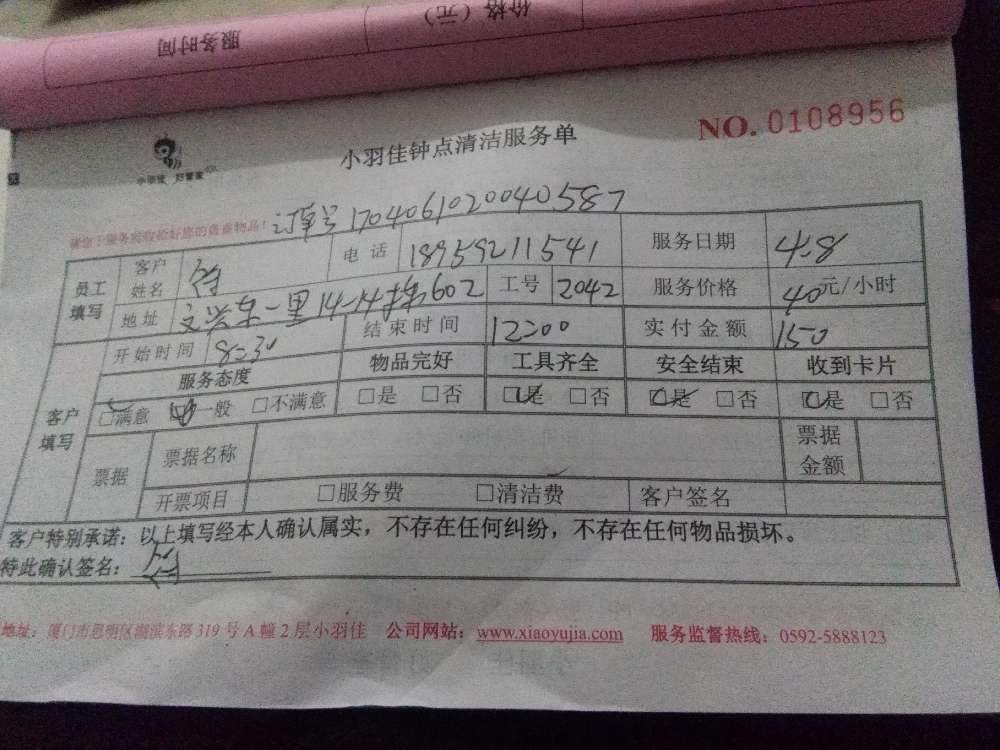 服务时间
价格（元）
小羽佳 好管家
小羽佳钟点清洁服务单
NO. 0108956
订单号 1704061020040587
员工填写
客户姓名
电话 18959211541
服务日期 4.8
地址 文兴东一里14-14梯602
工号 2042
服务价格 40元/小时
客户填写
开始时间 8:30
结束时间 12:00
实付金额 150
服务态度 物品完好 工具齐全 安全结束 收到卡片
□满意 □一般 □不满意 □是 □否 □是 □否 □是 □否 □是 □否
票据 票据名称 票据金额
开票项目 □服务费 □清洁费 客户签名
客户特别承诺：以上填写经本人确认属实，不存在任何纠纷，不存在任何物品损坏。
特此确认签名：
地址：厦门市思明区湖滨东路319号A幢2层小羽佳 公司网站：www.xiaoyujia.com 服务监督热线：0592-5888123